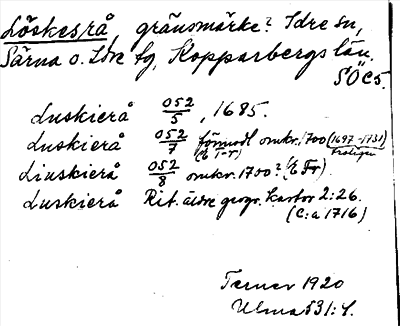 Löskesrå, gränsmärke? Idre sn,
Särna o. Idre tg, Kopparbergs län.
SÖC5.
Luskierå 052/5, 1685.
Luskierå 052/7 förmodl omkr. 1700 (1697-1731)
(E T-r) troligen
Liuskierå 052/8 omkr. 1700? (E Fr)
Luskierå Rit. äldre geogr. kartor 2:26.
(C:a 1716)
Terner 1920
Ulma 531:4.